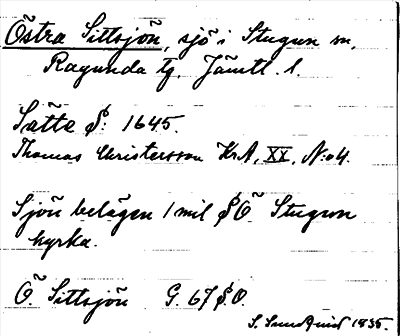 Östra Sittsjön, sjö i Stugun sn,
Ragunda tg. Jämtl. l.
Sätte S: 1645.
Thomas Christersson KrA, XX, N:o 4.
Sjön belägen 1 mil SÖ. Stugun
kyrka.
Ö. Sittsjön G. 67 S.O.
S. Sundquist 1935.